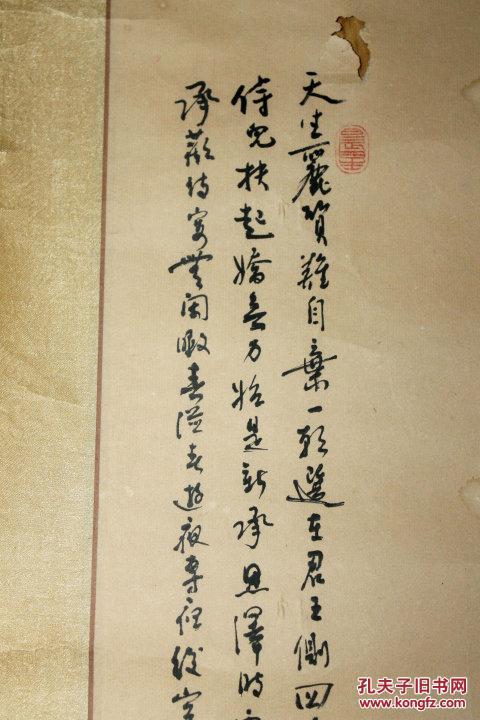 天生麗質難自棄一朝選在君王側回
侍兒扶起嬌無力始是新承恩澤時
承歡侍宴無閑暇春從春遊夜專夜後宮
孔夫子旧书网
www.kongfz.com